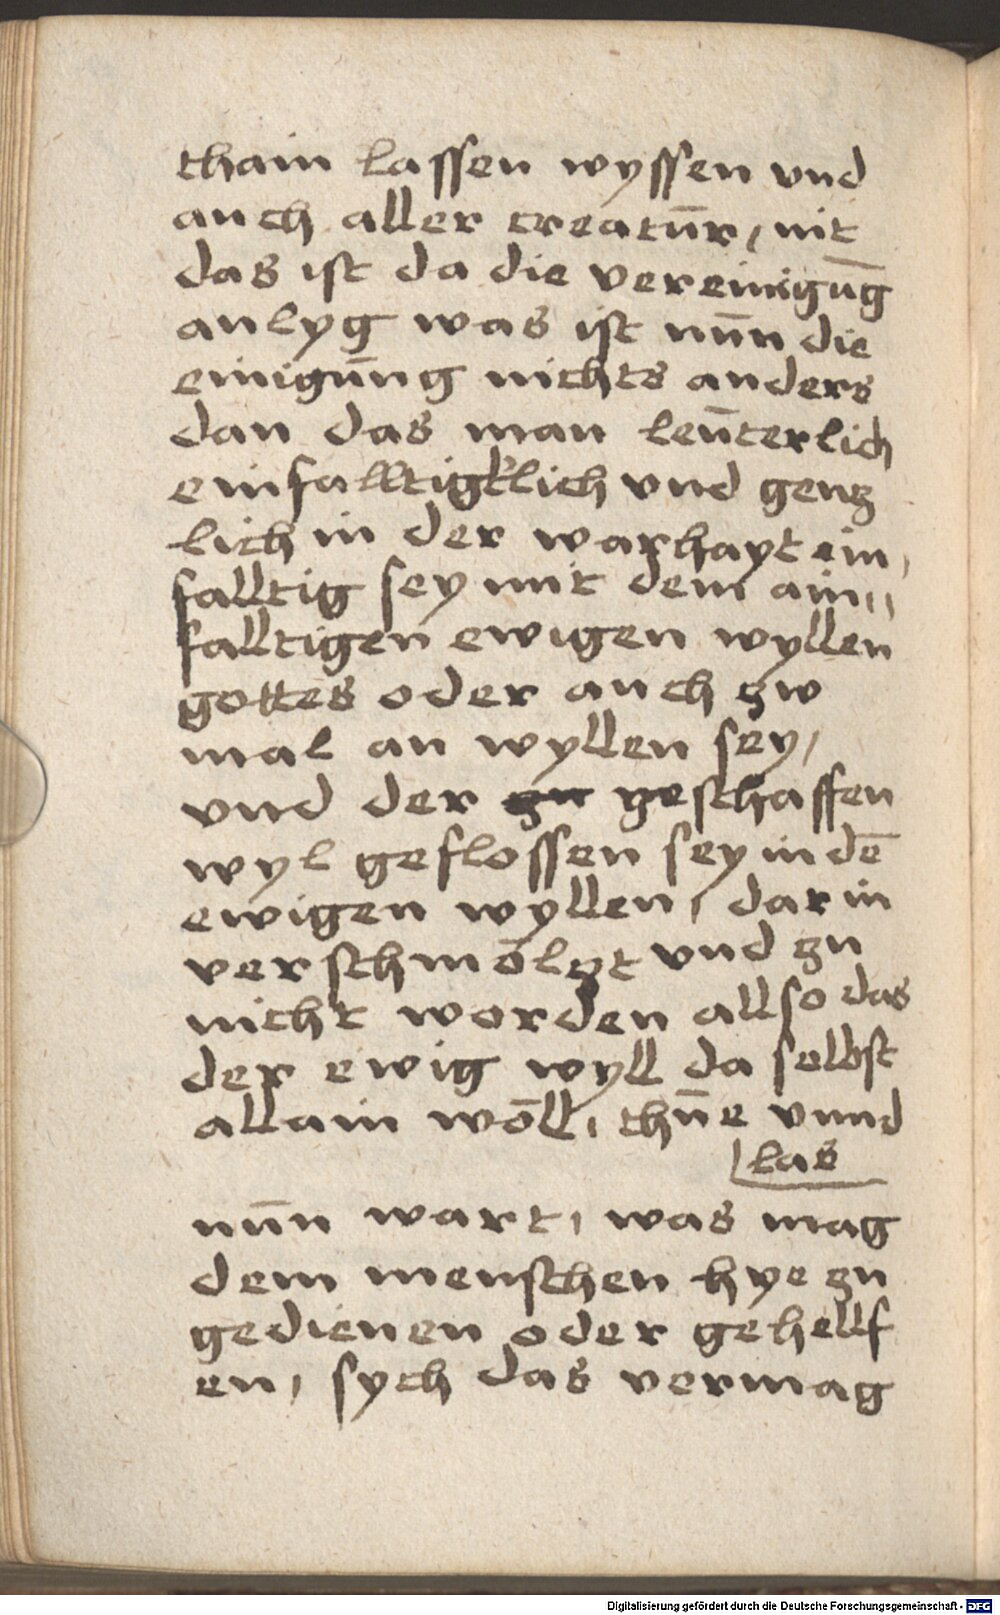 thain lassen wyssen vnd
auch aller creatūr, nit
das ist da die vereinigūg
anlyg was ist nūn die
einigūng nichts anders
dan das man leūterlich
einfalltigklich vnd gentz
lich in der warhayt ein,
falltig sey mit dem ain,,
falltigen ewigen wyllen
gottes oder auch zw
mal an wyllen sey,
vnd der zu geschaffen
wyl geflossen sey in dē
ewigen wyllen, dar in
verschmōlzt vnd zu
nicht worden allso das
der ewig wyll da selbst
allain wōll, thūe vnnd
las
nūn wart, was mag
dem menschen hye zu
gedienen oder gehellf
en, sych das vermag
Digitalisierung gefördert durch die Deutsche Forschungsgemeinschaft - DFG